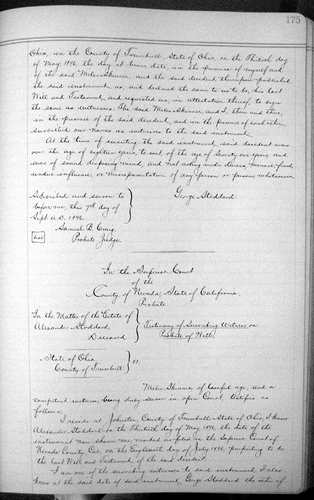 175
Ohio, in the County of Trumbull, State of Ohio, on the Thirtieth day
of May, 1896, the day it bears date, in the presence of myself and
of the said Miles Shumar, and the said decedent thereupon published
the said instrument as, and declared the same to us to be, his last
Will and Testament, and requested us, in attestation thereof, to sign
the same as witnesses. The said Miles Shumar, and I, then and there,
in the presence of the said decedent, and in the presence of each other
subscribed our names as witnesses to the said instrument.
At the time of executing the said instrument, said decedent was
over the age of eighteen years, to wit, of the age of Seventy one years, and
was of sound disposing mind, and not acting under duress, menace, fraud,
undue influence, or misrepresentation of any person or persons whomsoever.
Subscribed and sworn to
before me, this 7th day of
Sept. A.D. 1896.
George Stoddard
Samuel B. Craig,
Probate Judge.
Seal
In the Superior Court
of the
County of Nevada, State of California.
Probate
In the Matter of the Estate of
Alexander Stoddard,
Deceased
Testimony of Subscribing Witness on
Probate of Will.
State of Ohio,
County of Trumbull
ss.
Miles Shumar of lawful age, and a
competent witness, being duly sworn in open Court, testifies as
follows:
I reside at Johnston, County of Trumbull, State of Ohio, I knew
Alexander Stoddard, on the Thirtieth day of May, 1896, the date of the
instrument now shown me, marked as filed in the Superior Court of
Nevada County, Cal, on the day of July 1896, purporting to be
the last Will and Testament of the said decedent.
I am one of the subscribing witnesses to said instrument, I also
knew at the said date of said instrument, George Stoddard the other of